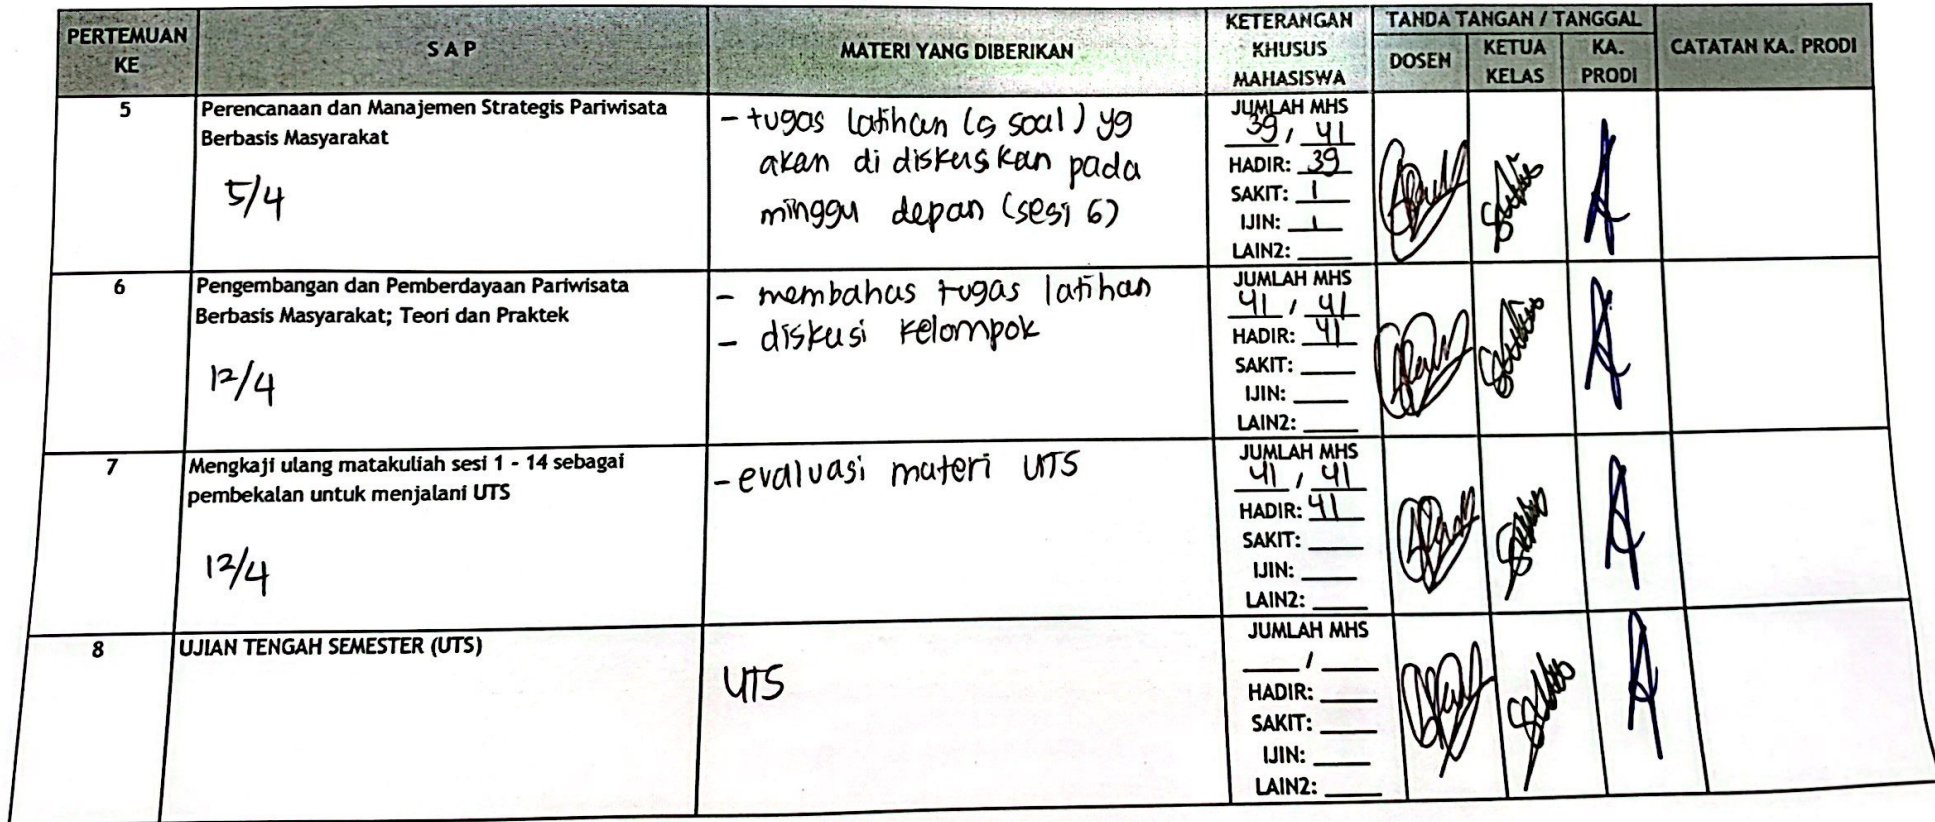 PERTEMUAN KE
S A P
MATERI YANG DIBERIKAN
KETERANGAN KHUSUS MAHASISWA
TANDA TANGAN / TANGGAL
DOSEN
KETUA KELAS
KA. PRODI
CATATAN KA. PRODI
5
Perencanaan dan Manajemen Strategis Pariwisata
Berbasis Masyarakat
5/4
- tugas latihan ( soal ) yg
akan di diskusikan pada
minggu depan (sesi 6)
JUMLAH MHS
39 / 41
HADIR: 39
SAKIT: 1
IJIN: 1
LAIN2:
6
Pengembangan dan Pemberdayaan Pariwisata
Berbasis Masyarakat; Teori dan Praktek
12/4
- membahas tugas latihan
- diskusi kelompok
JUMLAH MHS
41 / 41
HADIR: 41
SAKIT:
IJIN:
LAIN2:
7
Mengkaji ulang matakuliah sesi 1 - 14 sebagai
pembekalan untuk menjalani UTS
12/4
- evaluasi materi UTS
JUMLAH MHS
41 / 41
HADIR: 41
SAKIT:
IJIN:
LAIN2:
8
UJIAN TENGAH SEMESTER (UTS)
UTS
JUMLAH MHS
/
HADIR:
SAKIT:
IJIN:
LAIN2: